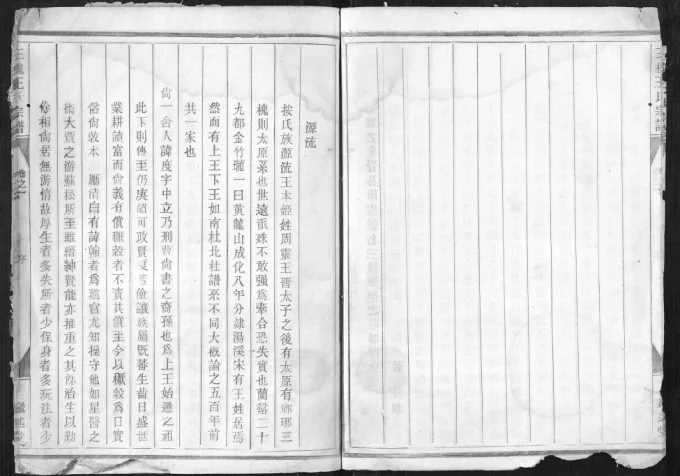 源流
按氏族源流王本姬姓周靈王晉太子之後有太原有瑯琊三
槐則太原系也世遠派殊不敢强爲牽合恐失實也蘭谿二十
九都金竹壠一曰黃龍山成化八年分隸湯溪宋有王姓居焉
然而有上王下王如南杜北杜譜系不同大概論之五百年前
共一家也
尙一舍人諱度字中立乃刑曹尙書之裔孫也爲上王始遷之祖
此下則傳至仍庚韶可政賢 儉讓族屬旣蕃生齒日盛世
業耕讀富而尙義有償 穀者不責其償至今以 穀爲口實
俗尙敦本 勵清白有諱翰者爲巡官尤知操守他如星醫之
術大賈之游蘇松所至雖縉紳賢能亦推重之其 治生以勤
儉相尙居無游惰故厚生者多失所者少保身者多玩法者少
三槐王氏宗譜
卷之一
序
三槐王氏宗譜